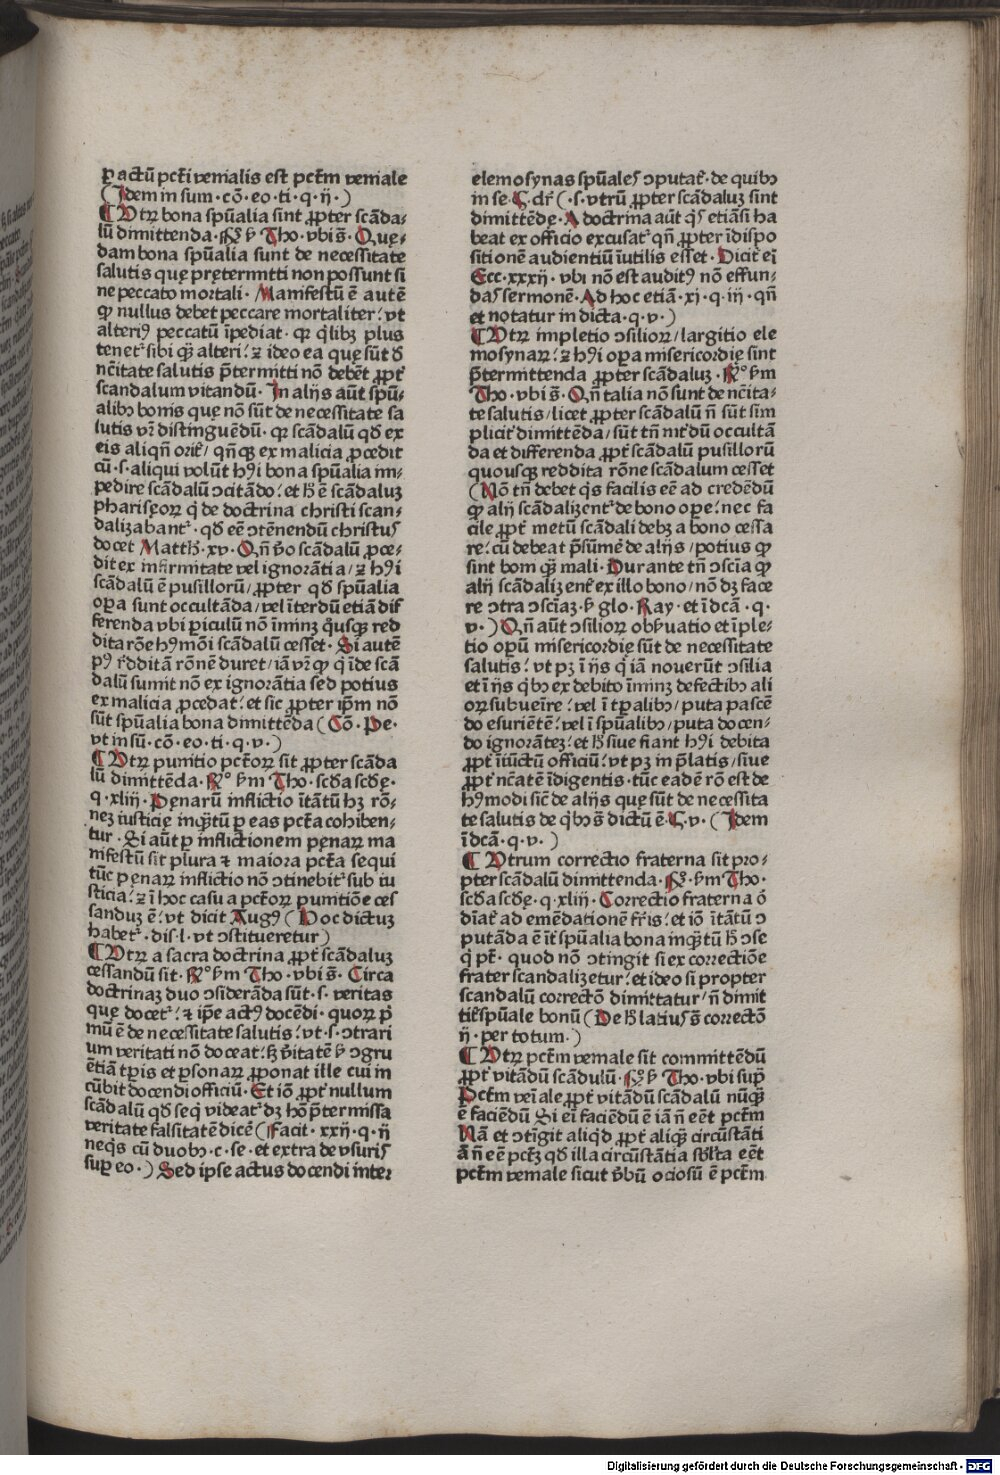 ꝑ actū pctī venialis est pctm̄ veniale
(Idem in sum · cō · eo · ti · q · ij · )
¶ Vtrꝝ bona spūalia sint ꝓpter scāda⸗
lū dimittenda · Rº ẜ Tho · vbi s̄ · Quę⸗
dam bona spūalia sunt de necessitate
salutis quę pretermitti non possunt si
ne peccato mortali · Manifestū ē autē
ꝙ nullus debet peccare mortaliter / vt
alteriꝰ peccatū īpediat · qꝛ qͥlibꝫ plus
tenetᷣ sibi qͣꝫ alteri / ⁊ ideo ea quę sūt đ
ncītate salutis p̄termitti nō debēt ꝓpt̄
scandalum vitandū · In alijs aūt spū⸗
alibꝰ bonis que nō sūt de necessitate sa
lutis vr̄ distinguēdū · qꝛ scādalū qđ ex
eis aliqn̄ orit᷑ / qn̄qꝫ ex malicia ꝓcedit
cū · s · aliqui volūt hꝰi bona spūalia im⸗
pedire scādalū ↄcitādo / et h̄ ē scādaluꝫ
phariseoꝝ qͥ de doctrina christi scan⸗
dalizabantᷣ · qđ eē ↄtēnendū christuꝰ
docet Matth · xv · Qn̄ v̊o scādalū ꝓce⸗
dit ex infirmitate vel ignorātia / ⁊ hꝰi
scādalū ē pusillorū / ꝓpter qđ spūalia
oꝑa sunt occultāda / vel īterdū etiā dif
ferenda vbi ꝑiculū nō īminꝫ qͦusqꝫ red
dita rōe hꝰmōi scādalū cesset · Si autē
pꝰ r̄dditā rōnē duret / iā vr̄ ꝙ qͥ īde scā
dalū sumit nō ex ignorātia sed potius
ex malicia ꝓcedat / et sic ꝓpter ip̄m nō
sūt spūalia bona dimittēda (Cō · Pe ·
vt in sū · cō · eo · ti · q · v · )
¶ Vtrꝝ punitio pctōꝝ sit ꝓpter scāda
lū dimittēda · Rº ẜm Tho · scđa scđe ·
q · xliij · Pęnarū inflictio ītātū hꝫ rō⸗
neꝫ iusticię inqͣꝫtū ꝑ eas pctā cohiben⸗
tur · Si aūt ꝑ inflictionem pęnaꝝ ma
nifestū sit plura ⁊ maiora pctā sequi
tūc pęnaꝝ inflictio nō ↄtinebitᷣ sub iu
sticia / ⁊ ī hoc casu a pctōꝝ punitiōe ces
sanduꝫ ē / vt dicit Augꝰ (Hoc dictuꝫ
habetᷣ · dis · l · vt ↄstitueretur)
¶ Vtrꝝ a sacra doctrina ꝓpt̄ scādaluꝫ
cessandū sit · Rº ẜm Tho · vbi s̄ · Circa
doctrinaꝫ duo ↄsiderāda sūt · s · veritas
quę docetᷣ / ⁊ ip̄e actꝰ docēdi · quoꝝ pͥ
mū ē de necessitate salutis / vt · s · ↄtrari
um veritati nō doceat / sꝫ v̄itatē ẜ ↄgru
ētiā tꝑis et ꝑsonaꝝ ꝓponat ille cui in
cūbit docendi officiū · Et iō ꝓpt̄ nullum
scādalū qđ seqͥ videatᷣ dꝫ hō p̄termissa
veritate falsitatē dicē (Facit · xxij · q · ij
neqͥs cū duobꝰ · c · se · et extra de vsuris
suꝑ eo · ) Sed ipse actus docendi inter
elemosynas spūales ↄputat᷑ · de quibꝰ
in se · C · dr̄ ( · s · vtrū ꝓpter scādaluꝫ sint
dimittēdę · A doctrina aūt qͥs etiāsi ha
beat ex officio excusatᷣ qn̄ ꝓpter īdispo
sitionē audientiū īutilis esset · Dicit̄ ei
Ecc · xxxij · vbi nō est auditꝰ nō effun⸗
das sermonē · Ad hoc etiā · xj · q · iij · qn̄
et notatur in dicta · q · v · )
¶ Vtrꝝ impletio ↄsilioꝝ / largitio ele
mosynaꝝ / ⁊ hꝰi oꝑa misericordię sint
p̄termittenda ꝓpter scādaluꝫ · Rº ẜm
Tho · vbi s̄ · Qn̄ talia nō sunt de ncīta⸗
te salutis / licet ꝓpter scādalū n̄ sūt sim
pliciť dimittēda / sūt tn̄ int̄dū occultā
da et differenda ꝓpt̄ scādalū pusillorū
quousqꝫ reddita rōne scādalum cesset
(Nō tn̄ debet qͥs facilis eē ad credēdū
ꝙ alij scādalizentᷣ de bono oꝑe / nec fa
cile ꝓpt̄ metū scādali debꝫ a bono cessa
re / cū debeat p̄sumē de alijs / potius ꝙ
sint boni qͣꝫ mali · Durante tn̄ ↄscīa ꝙ
alij scādalizent᷑ ex illo bono / nō dꝫ face
re ↄtra ↄscīaꝫ · ẜ glo · Ray · et īdcā · q ·
v · ) Qn̄ aūt ↄsilioꝝ obẜuatio et īple⸗
tio oꝑū misericordię sūt de necessitate
salutis / vt pꝫ ī ijs qͥ iā nouerūt ↄsilia
et ī ijs qͥbꝰ ex debito īminꝫ defectibꝰ ali
oꝝ subueīre / vel ī tꝑalibꝰ / puta pascē
do esuriētē / vel ī spūalibꝰ / puta docen⸗
do ignorātez / et h̄ siue fiant hꝰi debita
ꝓpt̄ īiūctū officiū / vt pꝫ in p̄latis / siue
ꝓpt̄ ncātē īdigentis · tūc eadē rō est de
hꝰmodi sic̄ de alijs quę sūt de necessita
te salutis de qͥbꝰ s̄ dictū ē · C · v · (Idem
īdcā · q · v · )
¶ Vtrum correctio fraterna sit pro⸗
pter scādalū dimittenda · Rº · ẜm Tho ·
scđa scđę · q · xliij · Correctio fraterna o
dīat᷑ ad emēdationē fr̄is / et iō ītātū ↄ
putāda ē īt̄ spūalia bona inqͣꝫtū h̄ ↄse
qͥ pt̄ · quod nō ↄtingit si ex correctiōe
frater scandalizetur / et ideo si propter
scandalū correctō dimittatur / n̄ dimit
tit᷑ spūale bonū (De h̄ latius s̄ correctō
ij · per totum · )
¶ Vtrꝝ pctm̄ veniale sit committēdū
ꝓpt̄ vitādū scādulū · Rº ẜ Tho · vbi supͣ
Pctm̄ veīale ꝓpt̄ vitādū scādalū nūqͣꝫ
ē faciēdū Si ei faciēdū ē iā n̄ eēt pctm̄
Nā et ↄtīgit aliqͥd ꝓpt̄ aliqͣꝫ circūstāti
ā n̄ eē pctꝫ qđ illa circūstātia sb̄lta eēt
pctm̄ veniale sicut v̄bū ociosū ē pctm̄
Digitalisierung gefördert durch die Deutsche Forschungsgemeinschaft · DFG